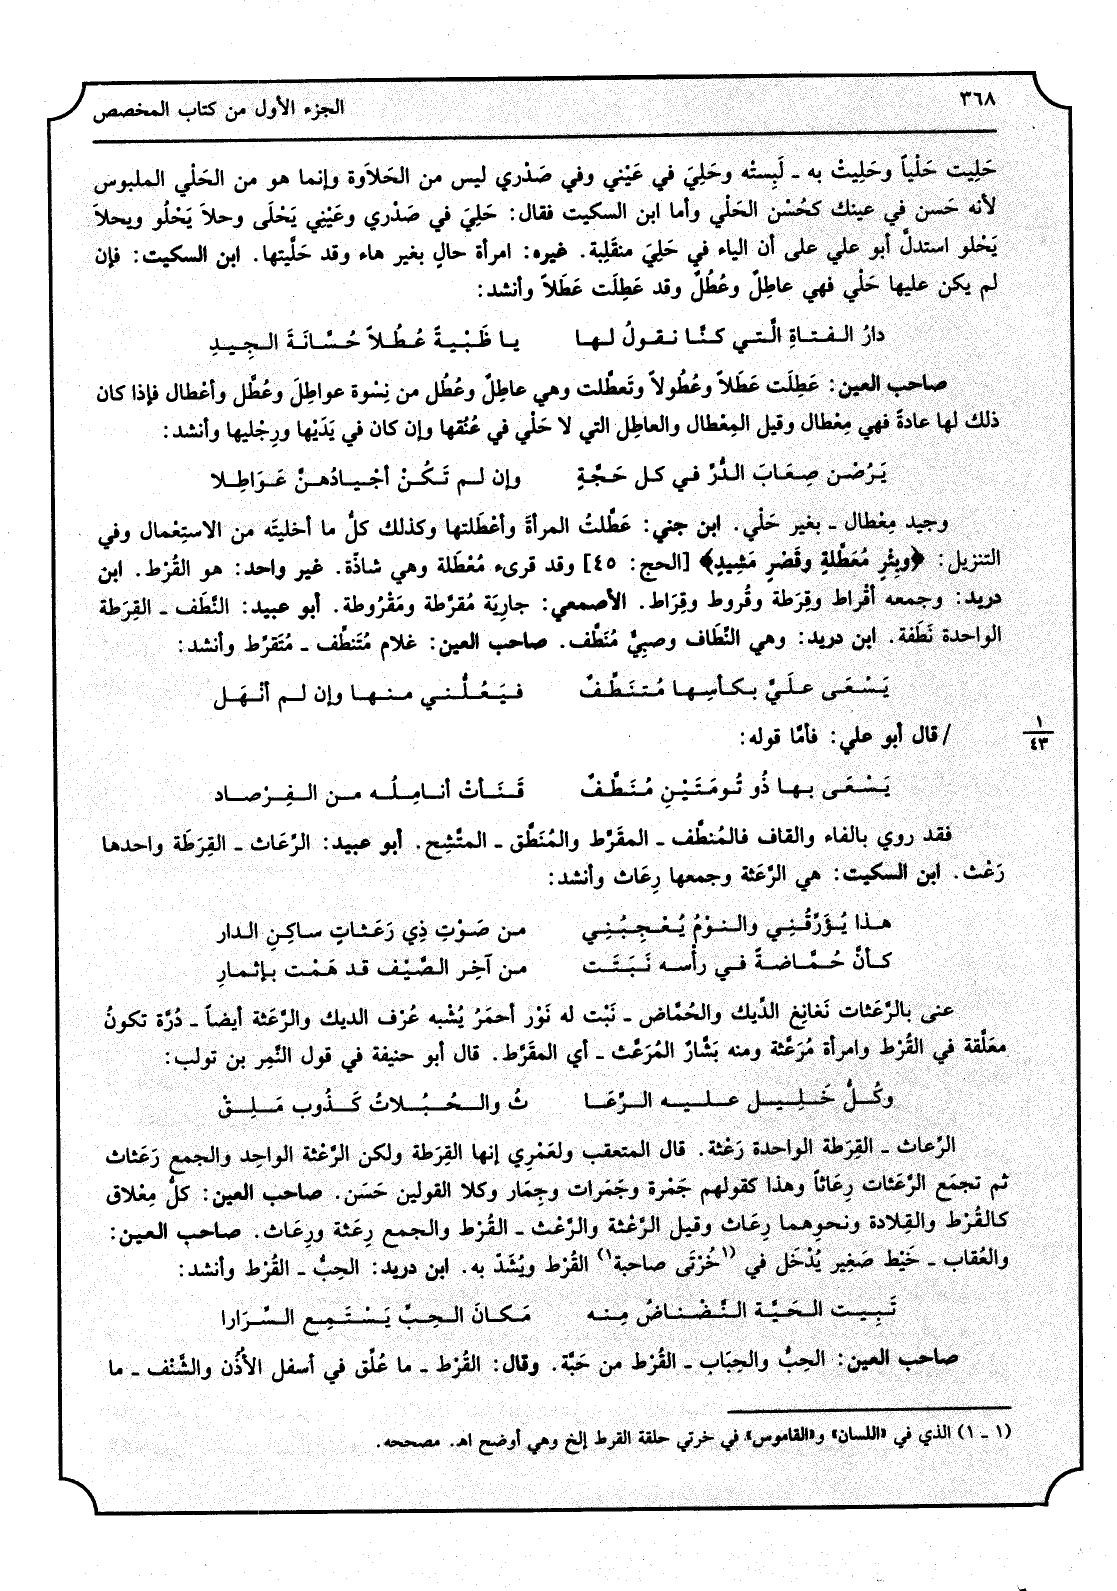 ٣٦٨
الجزء الأول من كتاب المخصص
حَلِيت حَلْياً وحَلِيتْ به ـ لَبِسَتْه وحَلِيَ في عَيْني وفي صَدْري ليس من الحَلاَوة وإنما هو من الحَلْي الملبوس
لأنه حَسن في عينك كحُسْن الحَلْي وأما ابن السكيت فقال: حَلِيَ في صَدْري وعَيْنِي يَحْلَى وحلاَ يَحْلُو ويحلاَ
يَحْلو استدلَّ أبو علي على أن الياء في حَلِيَ منقَلِبة. غيره: امرأة حالٍ بغير هاء وقد حَلَّيتها. ابن السكيت: فإن
لم يكن عليها حَلْي فهي عاطِلٌ وعُطُلٌ وقد عَطِلَت عَطَلاً وأنشد:
دارُ الفتاةِ الَّتي كنَّا نقولُ لها يا ظَبْيةً عُطُلاً حُسَّانَةَ الجِيدِ
صاحب العين: عَطِلَت عَطَلاً وعُطُولاً وتَعطَّلت وهي عاطِلٌ وعُطُل من نِسْوة عواطِلَ وعُطَّل وأعْطال فإذا كان
ذلك لها عادةً فهي مِعْطال وقيل المِعْطال والعاطِل التي لا حَلْي في عُنُقها وإن كان في يَدَيْها ورِجْليها وأنشد:
يَرُضْن صِعَابَ الدُّرِّ في كل حَجَّةٍ وإن لم تَكُنْ أجْيادُهنَّ عَوَاطِلا
وجيد مِعْطال ـ بغير حَلْي. ابن جني: عَطَّلتُ المرأةَ وأعْطَلتها وكذلك كلُّ ما أخليتَه من الاستِعْمال وفي
التنزيل: ﴿وبِئْرٍ مُعَطَّلةٍ وقَصْرٍ مَشِيدٍ﴾ [الحج: ٤٥] وقد قرىء مُعْطَلة وهي شاذّة. غير واحد: هو القُرْط. ابن
دريد: وجمعه أقْراط وقِرَطة وقُروط وقِرَاط. الأصمعي: جارِيَة مُقرَّطة ومَقْروطة. أبو عبيد: النَّطَف ـ القِرَطة
الواحدة نَطَفة. ابن دريد: وهي النِّطَاف وصبيٌّ مُنَطَّف. صاحب العين: غلام مُتَنطِّف ـ مُتَقرِّط وأنشد:
يَسْعَى علَيَّ بكأسِها مُتنَطِّفٌ فيَعُلُّني منها وإن لم أنْهَل
/ قال أبو علي: فأمَّا قوله:
١
٤٣
يَسْعَى بها ذُو تُومَتَيْنِ مُنَطَّفٌ قَنَأتْ أنامِلُه من الفِرْصاد
فقد روي بالفاء والقاف فالمُنطَّف ـ المقَرَّط والمُنَطَّق ـ المتَّشِح. أبو عبيد: الرِّعَاث ـ القِرَطَة واحدها
رَعْث. ابن السكيت: هي الرَّعَثة وجمعها رِعَاث وأنشد:
هذا يُؤَرِّقُنِي والنوْمُ يُعْجِبُنِي من صَوْتِ ذِي رَعَثاتٍ ساكِنِ الدار
كأنَّ حُمَّاضةً في رأسه نَبَتَت من آخِر الصَّيْف قد هَمْت بإثمارِ
عنى بالرَّعَثات نَغانِغ الدِّيك والحُمَّاض ـ نَبْت له نَوْر أحمَرُ يُشْبه عُرْف الديك والرَّعَثة أيضاً ـ دُرَّة تكونُ
معَلَّقة في القُرْط وامرأة مُرَعَّثة ومنه بَشَّارٌ المُرَعَّث ـ أي المقَرَّط. قال أبو حنيفة في قول النَّمِر بن تولب:
وكُلُّ خَلِيل عليه الرِّعَا ثُ والحُبُلاتُ كَذُوب مَلِقْ
الرِّعاث ـ القِرَطة الواحدة رَعْثة. قال المتعقب ولعَمْرِي إنها القِرَطة ولكن الرَّعْثة الواحِد والجمع رَعَثات
ثم تجمَع الرَّعَثات رِعَاثاً وهذا كقولهم جَمْرة وجَمَرات وجِمَار وكلا القولين حَسَن. صاحب العين: كلُّ مِعْلاق
كالقُرْط والقِلادة ونحوِهما رِعَاث وقيل الرَّعْثة والرَّعْث ـ القُرْط والجمع رِعَثة ورِعَاث. صاحب العين:
والعُقاب ـ خَيْط صَغِير يُدْخَل في (١خُرْتَى صاحبة١) القُرْط ويُشَدّ به. ابن دريد: الحِبُّ ـ القُرْط وأنشد:
تَبِيت الحَيَّة النَّضْناضُ مِنه مَكانَ الحِبِّ يَسْتَمِع السِّرَارا
صاحب العين: الحِبُّ والحِبَاب ـ القُرْط من حَبَّة. وقال: القُرْط ـ ما عُلِّق في أسفل الأُذُن والشَّنْف ـ ما
(١ ـ ١) الذي في «اللسان» و«القاموس» في خرتي حلقة القرط إلخ وهي أوضح اهـ. مصححه.